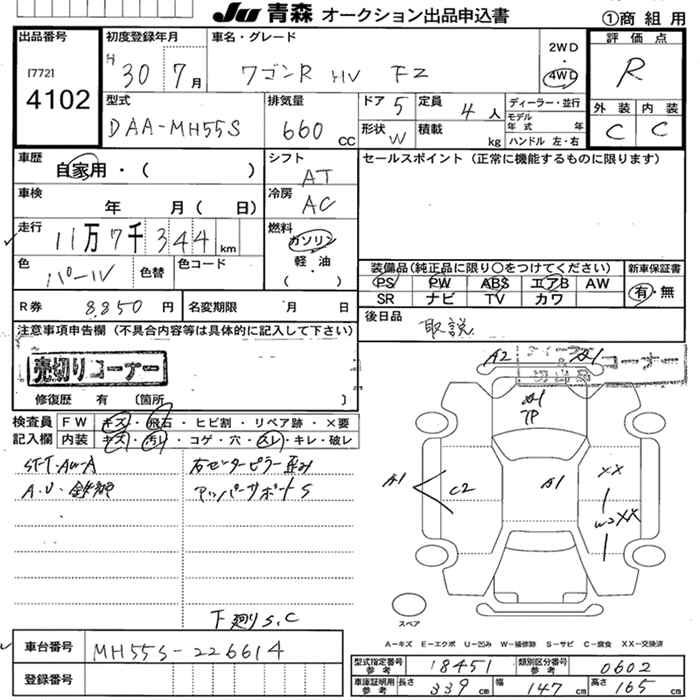 JU 青森 オークション出品申込書
①商組用
出品番号
17721
4102
初度登録年月
H 30 7月
車名・グレード
ワゴンR HV FZ
2WD
4WD
評価点
R
外装 内装
C C
型式
DAA-MH55S
排気量
660 CC
ドア 5
定員 4人
形状 W
積載 kg
ディーラー・並行
モデル年式 年
ハンドル 左・右
車歴
自家用・( )
シフト
AT
セールスポイント(正常に機能するものに限ります)
車検
年 月( 日)
冷房
AC
走行
11万7千344km
燃料
ガソリン
軽・油
( )
色
パール
色替
色コード
装備品(純正品に限り○をつけてください)
新車保証書
PS PW ABS エアB AW
SR ナビ TV カワ
有・無
R券 8,850円
名変期限 月 日
後日品
取説
注意事項申告欄(不具合内容等は具体的に記入して下さい)
売切りコーナー
コーナー
修復歴 有 〔箇所 〕
検査員記入欄
FW キズ・飛石・ヒビ割・リペア跡・×要
内装 キズ・汚レ・コゲ・穴・スレ・キレ・破レ
右センターピラー歪み
アッパーサポートS
下廻りS,C
A2
A1
A1
A1
C2
A1
XX
W2XX
スペア
A-キズ E-エクボ U-凹み W-補修跡 S-サビ C-腐食 XX-交換済
車台番号
MH55S-226614
登録番号
型式指定番号 参考 18451
類別区分番号 参考 0602
車庫証明用 参考 長さ 339cm 幅 147cm 高さ 165cm